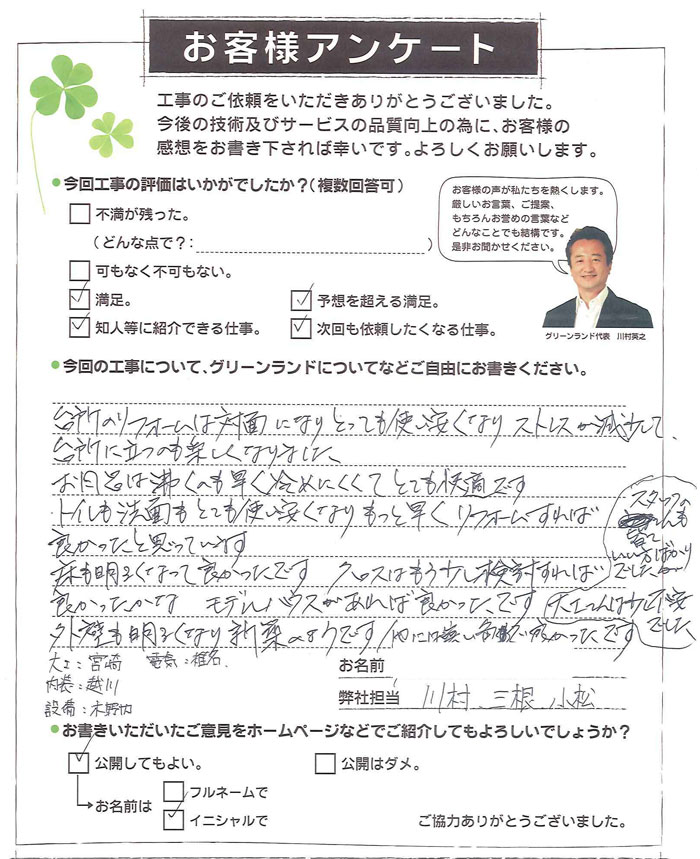 お客様アンケート
工事のご依頼をいただきありがとうございました。
今後の技術及びサービスの品質向上の為に、お客様の
感想をお書き下されば幸いです。よろしくお願いします。
●今回工事の評価はいかがでしたか?(複数回答可)
不満が残った。
(どんな点で?: )
可もなく不可もない。
満足。
予想を超える満足。
知人等に紹介できる仕事。
次回も依頼したくなる仕事。
お客様の声が私たちを熱くします。
厳しいお言葉、ご提案、
もちろんお誉めの言葉など
どんなことでも結構です。
是非お聞かせください。
グリーンランド代表 川村英之
●今回の工事について、グリーンランドについてなどご自由にお書きください。
台所のリフォームは対面になりとっても使い安くなり ストレスが減少して、
台所に立つのも楽しくなりました、
お風呂は沸くのも早く冷めにくくてとても快適です
トイレも洗面もとても使い安くなりもっと早くリフォームすれば
良かったと思っています
床も明るくなって良かったです クロスはもう少し検討すれば
良かったかな モデルハウスがあれば良かったです 大工さんは少し不安
でした
外壁も明るくなり新築のようです 他には無い色で良かったです
スタッフの
皆さんも
いい方ばかり
でした
大工:宮崎 電気:椎名
内装:越川
設備:木野内
お名前
弊社担当 川村、三根、小松
●お書きいただいたご意見をホームページなどでご紹介してもよろしいでしょうか?
公開してもよい。
公開はダメ。
お名前は
フルネームで
イニシャルで
ご協力ありがとうございました。